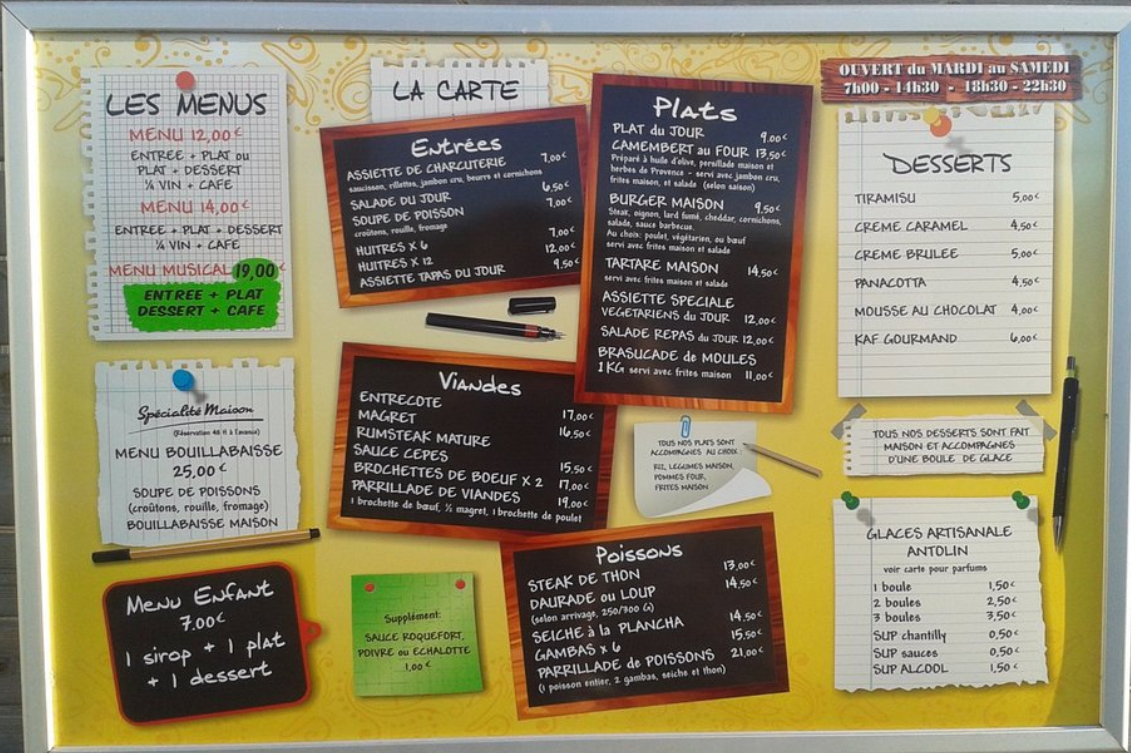 LES MENUS
MENU 12,00 €
ENTREE + PLAT ou
PLAT + DESSERT
¼ VIN + CAFE
MENU 14,00 €
ENTREE + PLAT + DESSERT
¼ VIN + CAFE
MENU MUSICAL 19,00 €
ENTREE + PLAT
DESSERT + CAFE
Spécialité Maison
(Réservation 48 H à l'avance)
MENU BOUILLABAISSE
25,00 €
SOUPE DE POISSONS
(croûtons, rouille, fromage)
BOUILLABAISSE MAISON
MENU ENFANT
7.00€
1 sirop + 1 plat
+ 1 dessert
LA CARTE
Entrées
ASSIETTE DE CHARCUTERIE 7,00€
saucisson, rillettes, jambon cru, beurre et cornichons
SALADE DU JOUR 6,50€
SOUPE DE POISSON 7,00€
croûtons, rouille, fromage
HUITRES X 6 7,00€
HUITRES X 12 12,00€
ASSIETTE TAPAS DU JOUR 9,50€
Viandes
ENTRECOTE 17,00€
MAGRET 16,50€
RUMSTEAK MATURE
SAUCE CEPES 15,50€
BROCHETTES DE BOEUF X 2 17,00€
PARRILLADE DE VIANDES 19,00€
1 brochette de bœuf, ½ magret, 1 brochette de poulet
Supplément:
SAUCE ROQUEFORT,
POIVRE ou ECHALOTTE
1,00 €
Plats
PLAT du JOUR 9,00€
CAMEMBERT au FOUR 13,50€
Préparé à huile d'olive, persillade maison et
herbes de Provence - servi avec jambon cru,
frites maison, et salade (selon saison)
BURGER MAISON 9,50€
Steak, oignon, lard fumé, cheddar, cornichons,
salade, sauce barbecue.
Au choix: poulet, végétarien, ou bœuf
servi avec frites maison et salade
TARTARE MAISON 14,50€
servi avec frites maison et salade
ASSIETTE SPECIALE
VEGETARIENS du JOUR 12,00€
SALADE REPAS du JOUR 12,00€
BRASUCADE de MOULES
1KG servi avec frites maison 11,00€
TOUS NOS PLATS SONT
ACCOMPAGNES AU CHOIX :
RIZ, LEGUMES MAISON,
POMMES FOUR,
FRITES MAISON
Poissons
STEAK DE THON 13,00€
DAURADE ou LOUP 14,50€
(selon arrivage, 250/300 G)
SEICHE à la PLANCHA 14,50€
GAMBAS X 6 15,50€
PARRILLADE de POISSONS 21,00€
(1 poisson entier, 2 gambas, seiche et thon)
OUVERT du MARDI au SAMEDI
7h00 - 14h30 - 18h30 - 22h30
DESSERTS
TIRAMISU 5,00€
CREME CARAMEL 4,50€
CREME BRULEE 5,00€
PANACOTTA 4,50€
MOUSSE AU CHOCOLAT 4,00€
KAF GOURMAND 6,00€
TOUS NOS DESSERTS SONT FAIT
MAISON ET ACCOMPAGNES
D'UNE BOULE DE GLACE
GLACES ARTISANALE
ANTOLIN
voir carte pour parfums
1 boule 1,50€
2 boules 2,50€
3 boules 3,50€
SUP chantilly 0,50€
SUP sauces 0,50€
SUP ALCOOL 1,50€